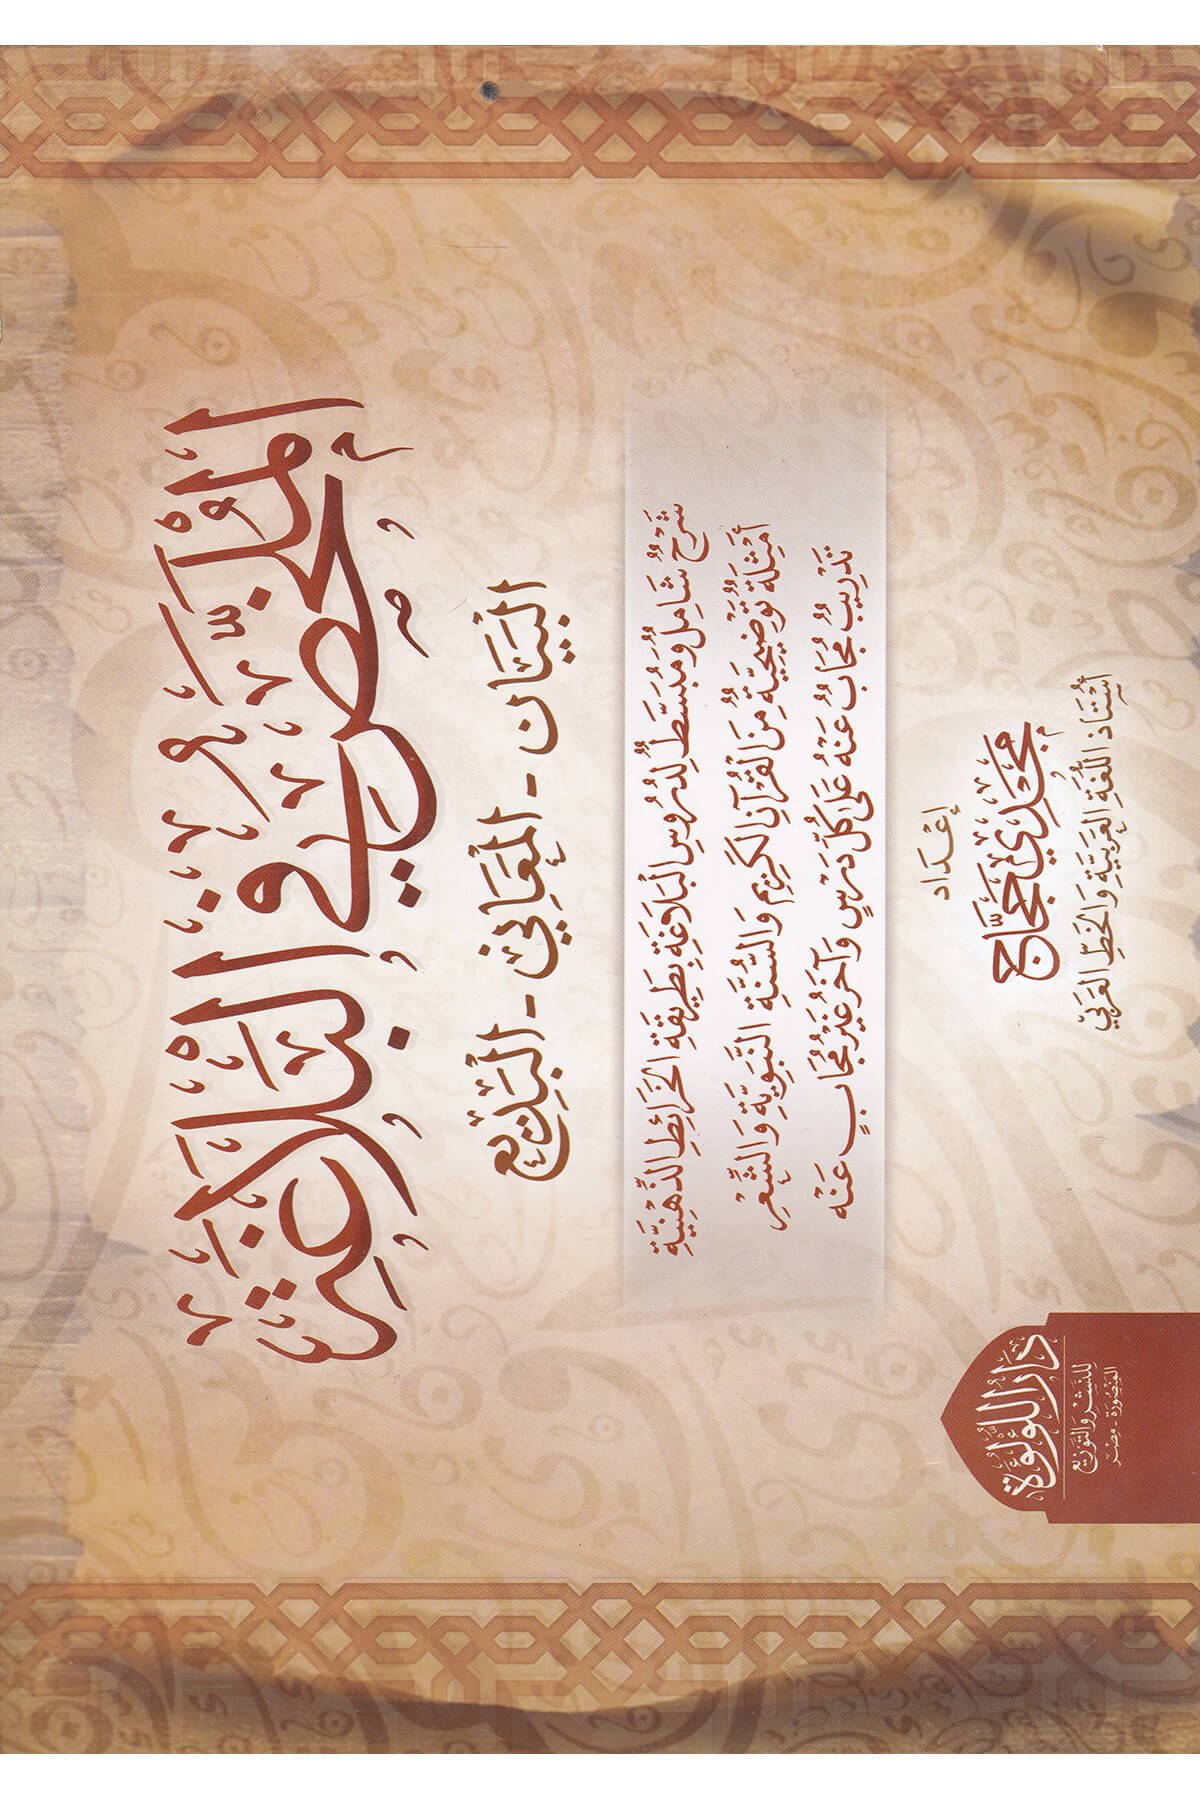 المُلَخَّصُ فِي البَلَاغَةِ
البَيَان - المَعَانِي - البَدِيع
شَرْحٌ شَامِلٌ وَمُبَسَّطٌ لِدُرُوسِ الْبَلَاغَةِ بِطَرِيقَةِ الخَرَائِطِ الذِّهْنِيَّةِ
أَمْثِلَةٌ تَوْضِيحِيَّةٌ مِنَ الْقُرْآنِ الْكَرِيمِ وَالسُّنَّةِ النَّبَوِيَّةِ وَالشِّعْرِ
تَدْرِيبٌ مُجَابٌ عَنْهُ عَلَى كُلِّ دَرْسٍ وَآخَرُ غَيْرُ مُجَابٍ عَنْهُ
إِعْدَاد
مَجْدِي حَجَّاج
أُسْتَاذُ اللُّغَةِ العَرَبِيَّةِ وَالخَطِّ العَرَبِيِّ
دار اللؤلؤة
لِلنَّشْرِ وَالتَّوْزِيع
المَنْصُورَة - مِصْر